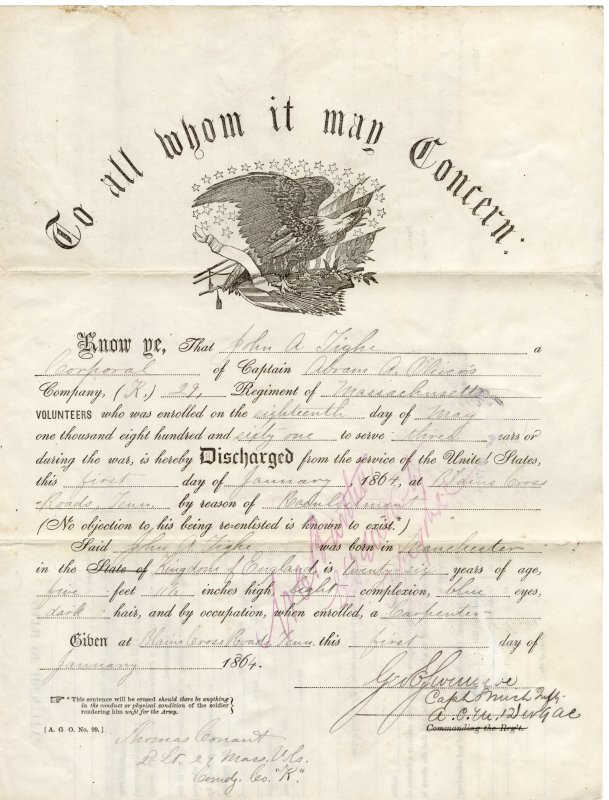 To all whom it may Concern:
Know ye, That John A Tighe a
Corporal of Captain Abram A. Oliver's
Company, (K,) 29, Regiment of Massachusetts
VOLUNTEERS who was enrolled on the eighteenth day of May
one thousand eight hundred and sixty one to serve three years or
during the war, is hereby Discharged from the service of the United States,
this first day of January, 1864, at Plains Cross
Roads, Tenn. by reason of Reenlistment
(No objection to his being re-enlisted is known to exist.*)
Said John A. Tighe was born in Manchester
in the State of Kingdom of England, is twenty six years of age,
five feet inches high, light complexion, blue eyes,
dark hair, and by occupation, when enrolled, a Carpenter
Given at Plains Cross Roads, Tenn, this first day of
January 1864.
Capt
A. C. M. 1 Div 9 AC
Commanding the Reg't.
* This sentence will be erased should there be anything
in the conduct or physical condition of the soldier
rendering him unfit for the Army.
[A. G. O. No. 99.]
Thomas Conant
2 Lt. 29 Mass. Vls.
Comdg. Co. "K".